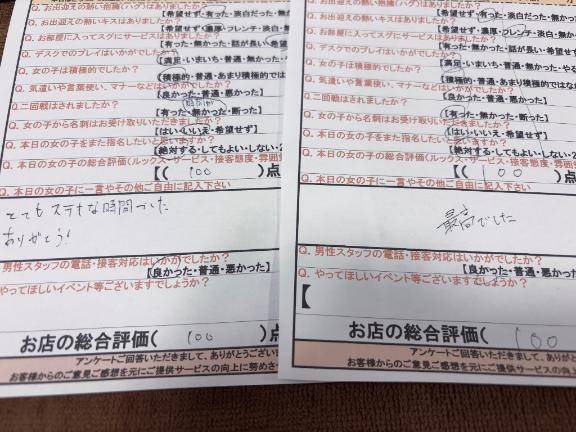 Q. お出迎えの熱い抱擁(ハグ)はありましたか?
【希望せず・有った・淡白だった・無か
Q. お出迎えの熱いキスはありましたか?
【希望せず・濃厚・フレンチ・淡白・無か
Q. お部屋に入ってスグにサービスはありましたか?
【有った・無かった・話が長い・希望せず
Q. デスクでのプレイはいかがでしたか?
【満足・いまいち・普通・無かった・やる
Q. 女の子は積極的でしたか?
【積極的・普通・あまり積極的では
Q. 気遣いや言葉使い、マナーなどはいかがでしたか?
【良かった・普通・悪かった】
Q. 二回戦はされましたか?
【有った・無かった・断った】
Q. 女の子から名刺はお受け取りいただきましたか?
【はい・いいえ・希望せず】
Q. 本日の女の子をまた指名したいと思いますか?
【絶対する・してもよい・しない・2
Q. 本日の女の子の総合評価(ルックス・サービス・接客態度・雰囲気
【( 100 )点
Q. 本日の女の子に一言やその他ご自由に記入下さい
とてもステキな時間でした
ありがとう!
男性スタッフの電話・接客対応はいかがでしたか?
【良かった・普通・悪かった】
やってほしいイベント等ございますでしょうか?
お店の総合評価( 100 )点
アンケートご回答いただきまして、ありがとうござい
お客様からのご意見ご感想を元にご提供サービスの向上に努めさせ
お出迎えの熱い抱擁(ハグ)はありましたか?
【希望せず・有った・淡白だった・無か
Q. お出迎えの熱いキスはありましたか?
【希望せず・濃厚・フレンチ・淡白・無
Q. お部屋に入ってスグにサービスはありましたか?
【有った・無かった・話が長い・希望せず
Q. デスクでのプレイはいかがでしたか?
【満足・いまいち・普通・無かった・や
Q. 女の子は積極的でしたか?
【積極的・普通・あまり積極的では
Q. 気遣いや言葉使い、マナーなどはいかがでしたか?
【良かった・普通・悪かった】
Q. 二回戦はされましたか?
【有った・無かった・断った】
Q. 女の子から名刺はお受け取りいただきましたか?
【はい・いいえ・希望せず】
Q. 本日の女の子をまた指名したいと思いますか?
【絶対する・してもよい・しない・
Q. 本日の女の子の総合評価(ルックス・サービス・接客態度・雰
【( 100 )点
Q. 本日の女の子に一言やその他ご自由に記入下さい
最高でした
Q. 男性スタッフの電話・接客対応はいかがでしたか?
【良かった・普通・悪かった
Q. やってほしいイベント等ございますでしょうか?
【
お店の総合評価( 100
アンケートご回答いただきまして、ありがとうご
お客様からのご意見ご感想を元にご提供サービスの向上に努